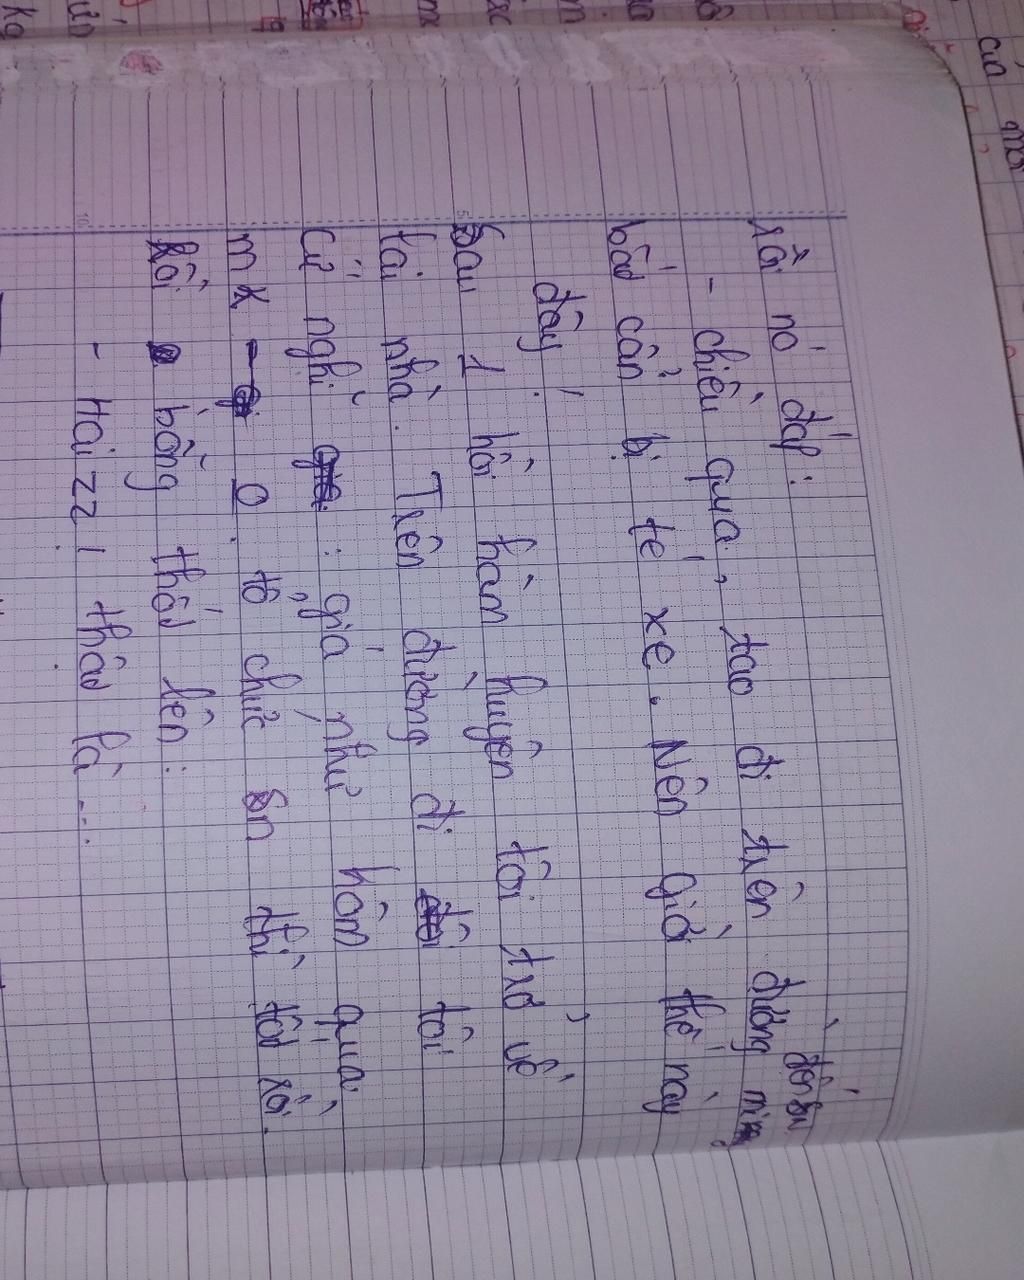 rồi nó đáp:
- chiều qua, tao đi trên đường đến sn
bất cẩn bị té xe. Nên giờ thế này
đây!
Sau 1 hồi hàn huyên tôi trở về
tại nhà. Trên đường đi tôi
Cứ nghĩ : giá như hôm qua
mk 0 tổ chức sn thì tốt rồi.
Rồi bỗng thốt lên:
- Haizz! thật là ...